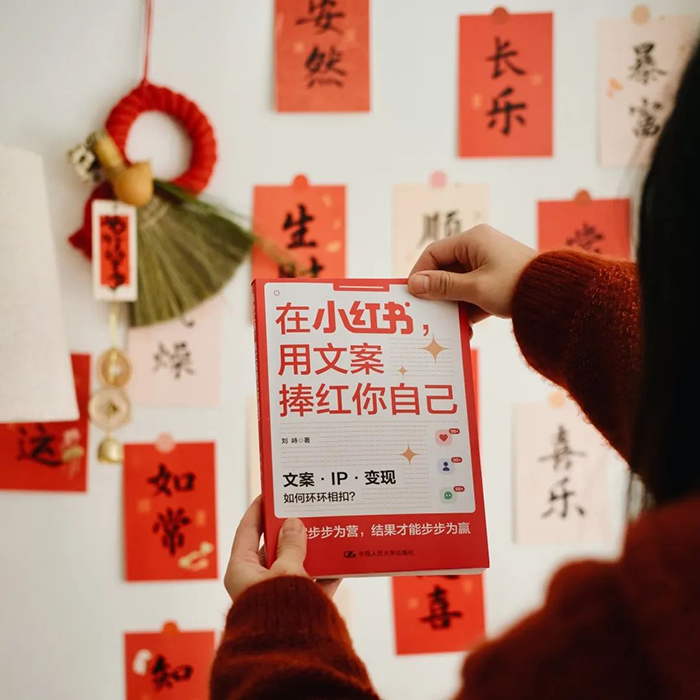 安然
长乐
暴富
生
顺
常
燥
这
如常
喜乐
喜
知
在小红书，
用文案
捧红你自己
刘峙◎著
文案·IP·变现
如何环环相扣？
步步为营，结果才能步步为赢
中国人民大学出版社
99+
99+
99+